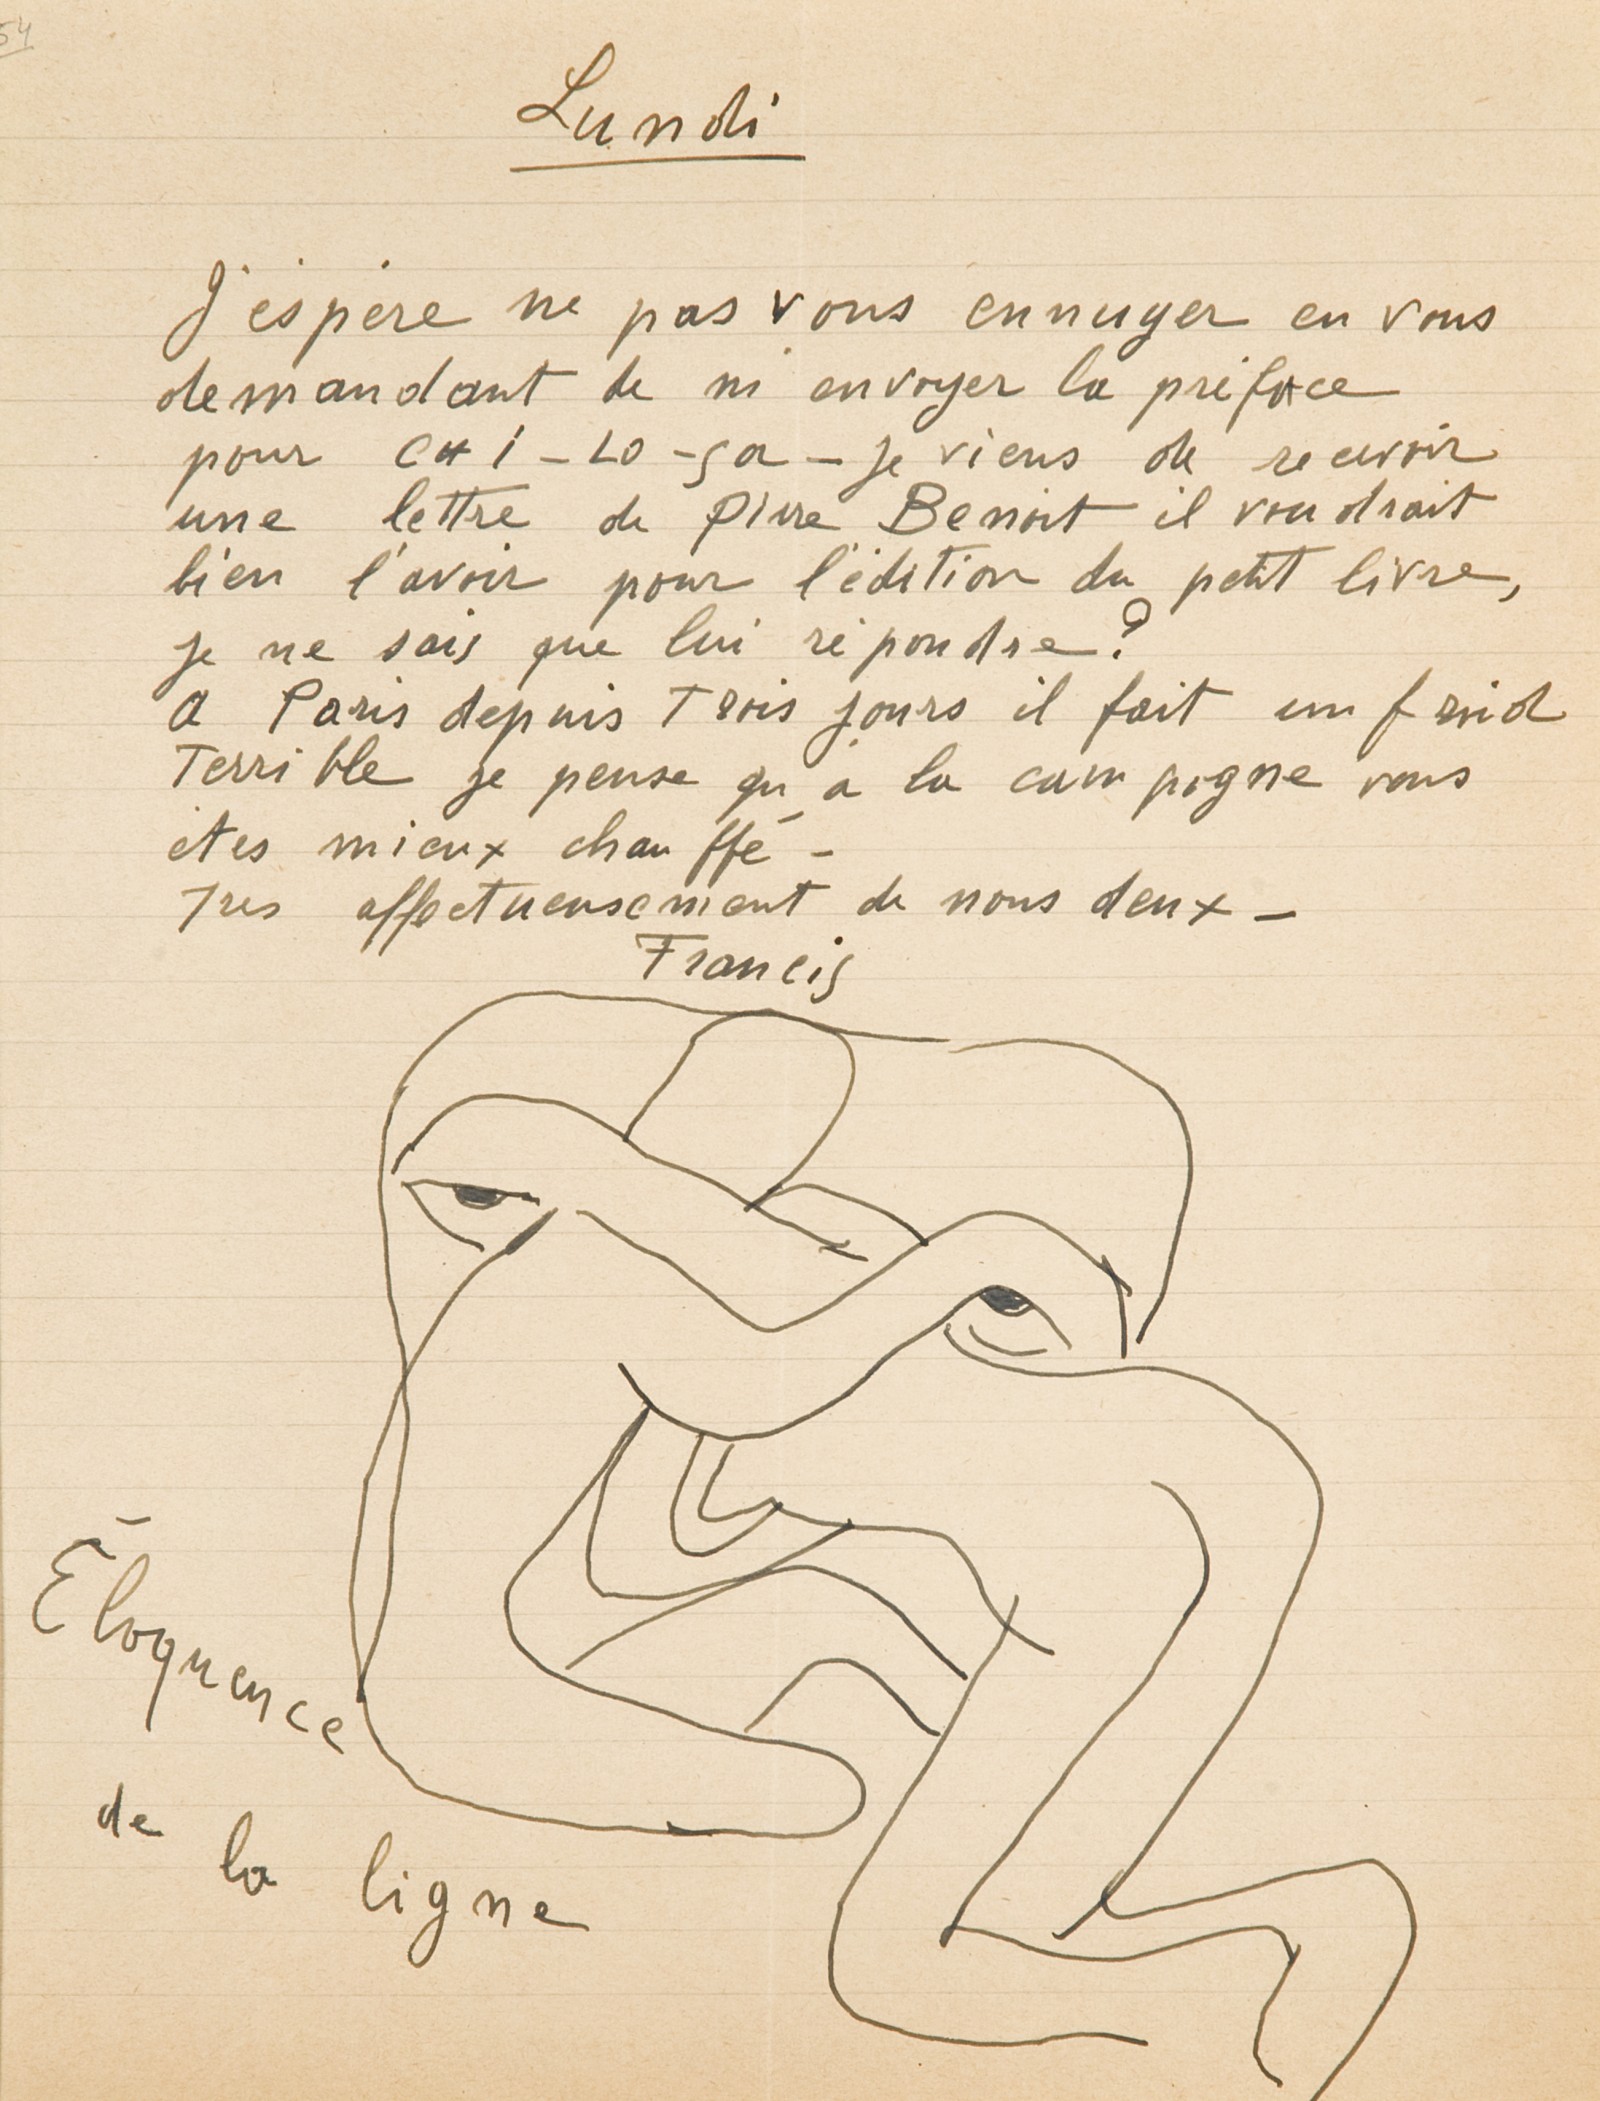 54
Lundi
J'éspère ne pas vous ennuyer en vous
demandant de m'envoyer la préface
pour CHI-LO-ça - je viens de recevoir
une lettre de Pierre Benoit il voudrait
bien l'avoir pour l'édition du petit livre,
je ne sais que lui répondre?
a Paris depuis Trois jours il fait un froid
Terrible je pense qu'à la campagne vous
êtes mieux chauffé -
Tres affectueusement de nous deux -
Francis
Éloquence
de
la ligne